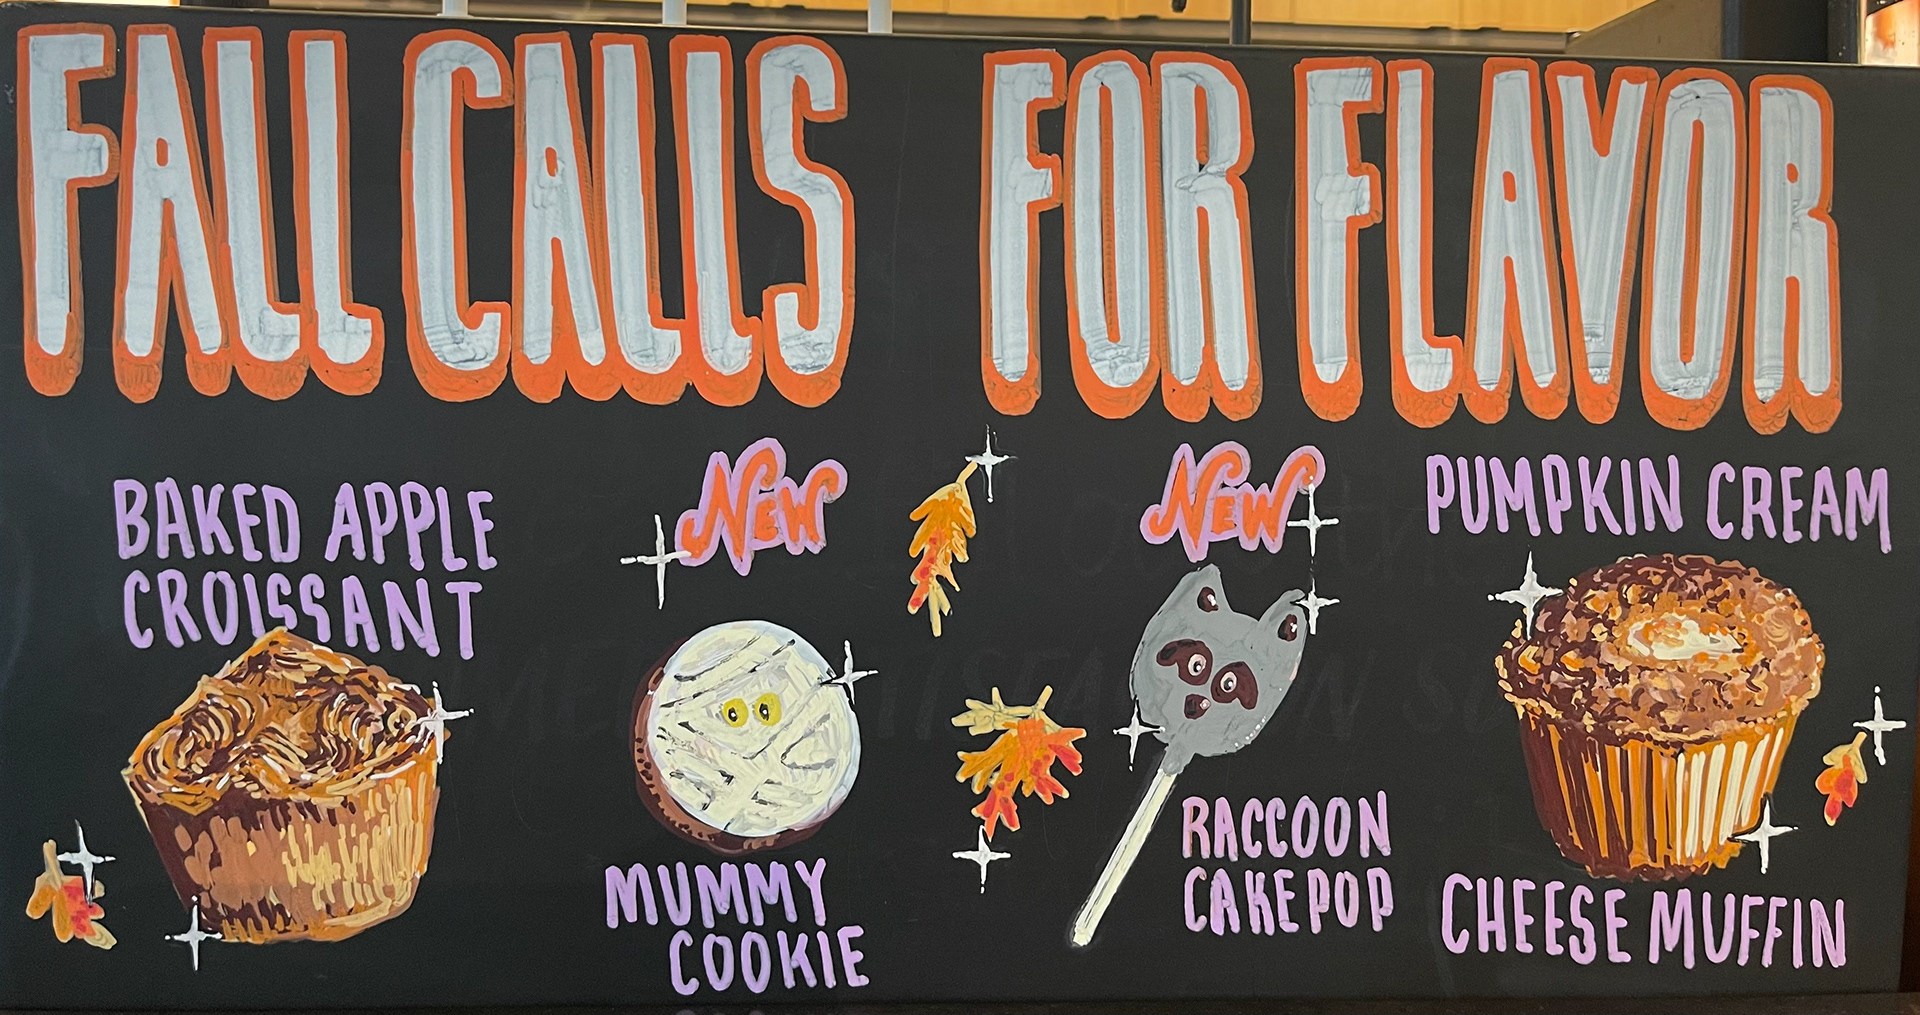 FALL CALLS FOR FLAVOR
BAKED APPLE
CROISSANT
NEW
MUMMY
COOKIE
NEW
RACCOON
CAKE POP
PUMPKIN CREAM
CHEESE MUFFIN